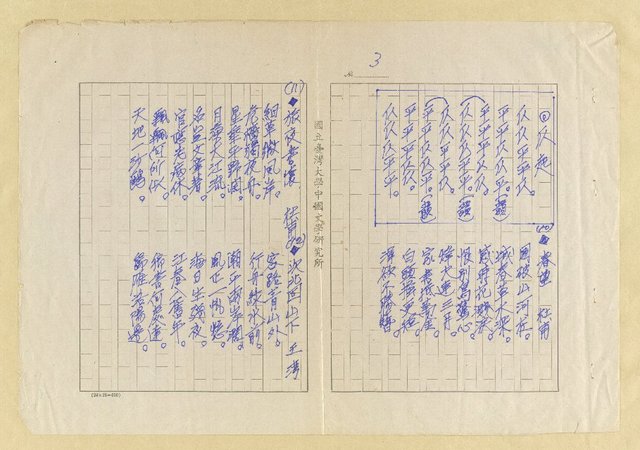 3
№
仄起
仄仄平平仄。
平平仄仄平。(韻)
平平平仄仄。
仄仄仄平平。(韻)
仄仄平平仄。
平平仄仄平。(韻)
平平平仄仄。
仄仄仄平平。(韻)
(10)◆春望 杜甫
國破山河在。
城春草木深。
感時花濺淚。
恨別鳥驚心。
烽火連三月。
家書抵萬金。
白頭搔更短。
渾欲不勝簪。
國立臺灣大學中國文學研究所
(11)◆旅夜書懷 杜甫
細草微風岸。
危檣獨夜舟。
星垂平野闊。
月湧大江流。
名豈文章著。
官應老病休。
飄飄何所似。
天地一沙鷗。
(12)◆次北固山下 王灣
客路青山外。
行舟綠水前。
潮平兩岸闊。
風正一帆懸。
海日生殘夜。
江春入舊年。
鄉書何處達。
歸雁洛陽邊。
(24×25=600)